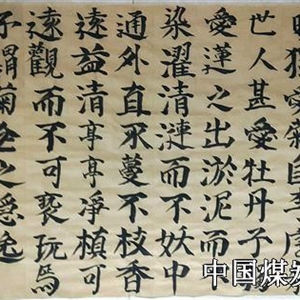 愛菊自
世人甚愛牡丹予
愛蓮之出淤泥而
染濯清漣而不妖中
通外直不蔓不枝香
遠益清亭亭淨植可
遠觀而不可褻玩焉
予謂菊花之隱逸
中国煤